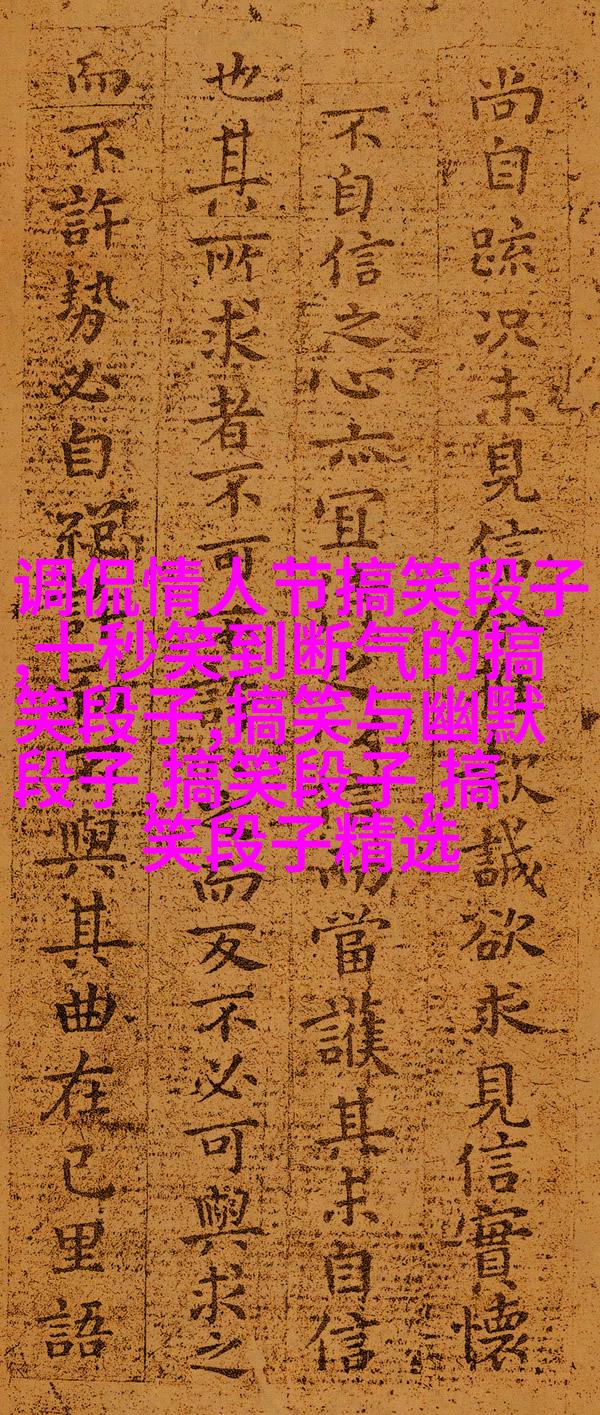 尚自疏況未見信
欲誠欲求見信實懷
不自信之心亦宜
當護其未自信
也其所求者不可
而反不必可與求之
而不許勢必自絕
與其曲在己里語
调侃情人节搞笑段子
,十秒笑到断气的搞
笑段子,搞笑与幽默
段子,搞笑段子,搞
笑段子精选